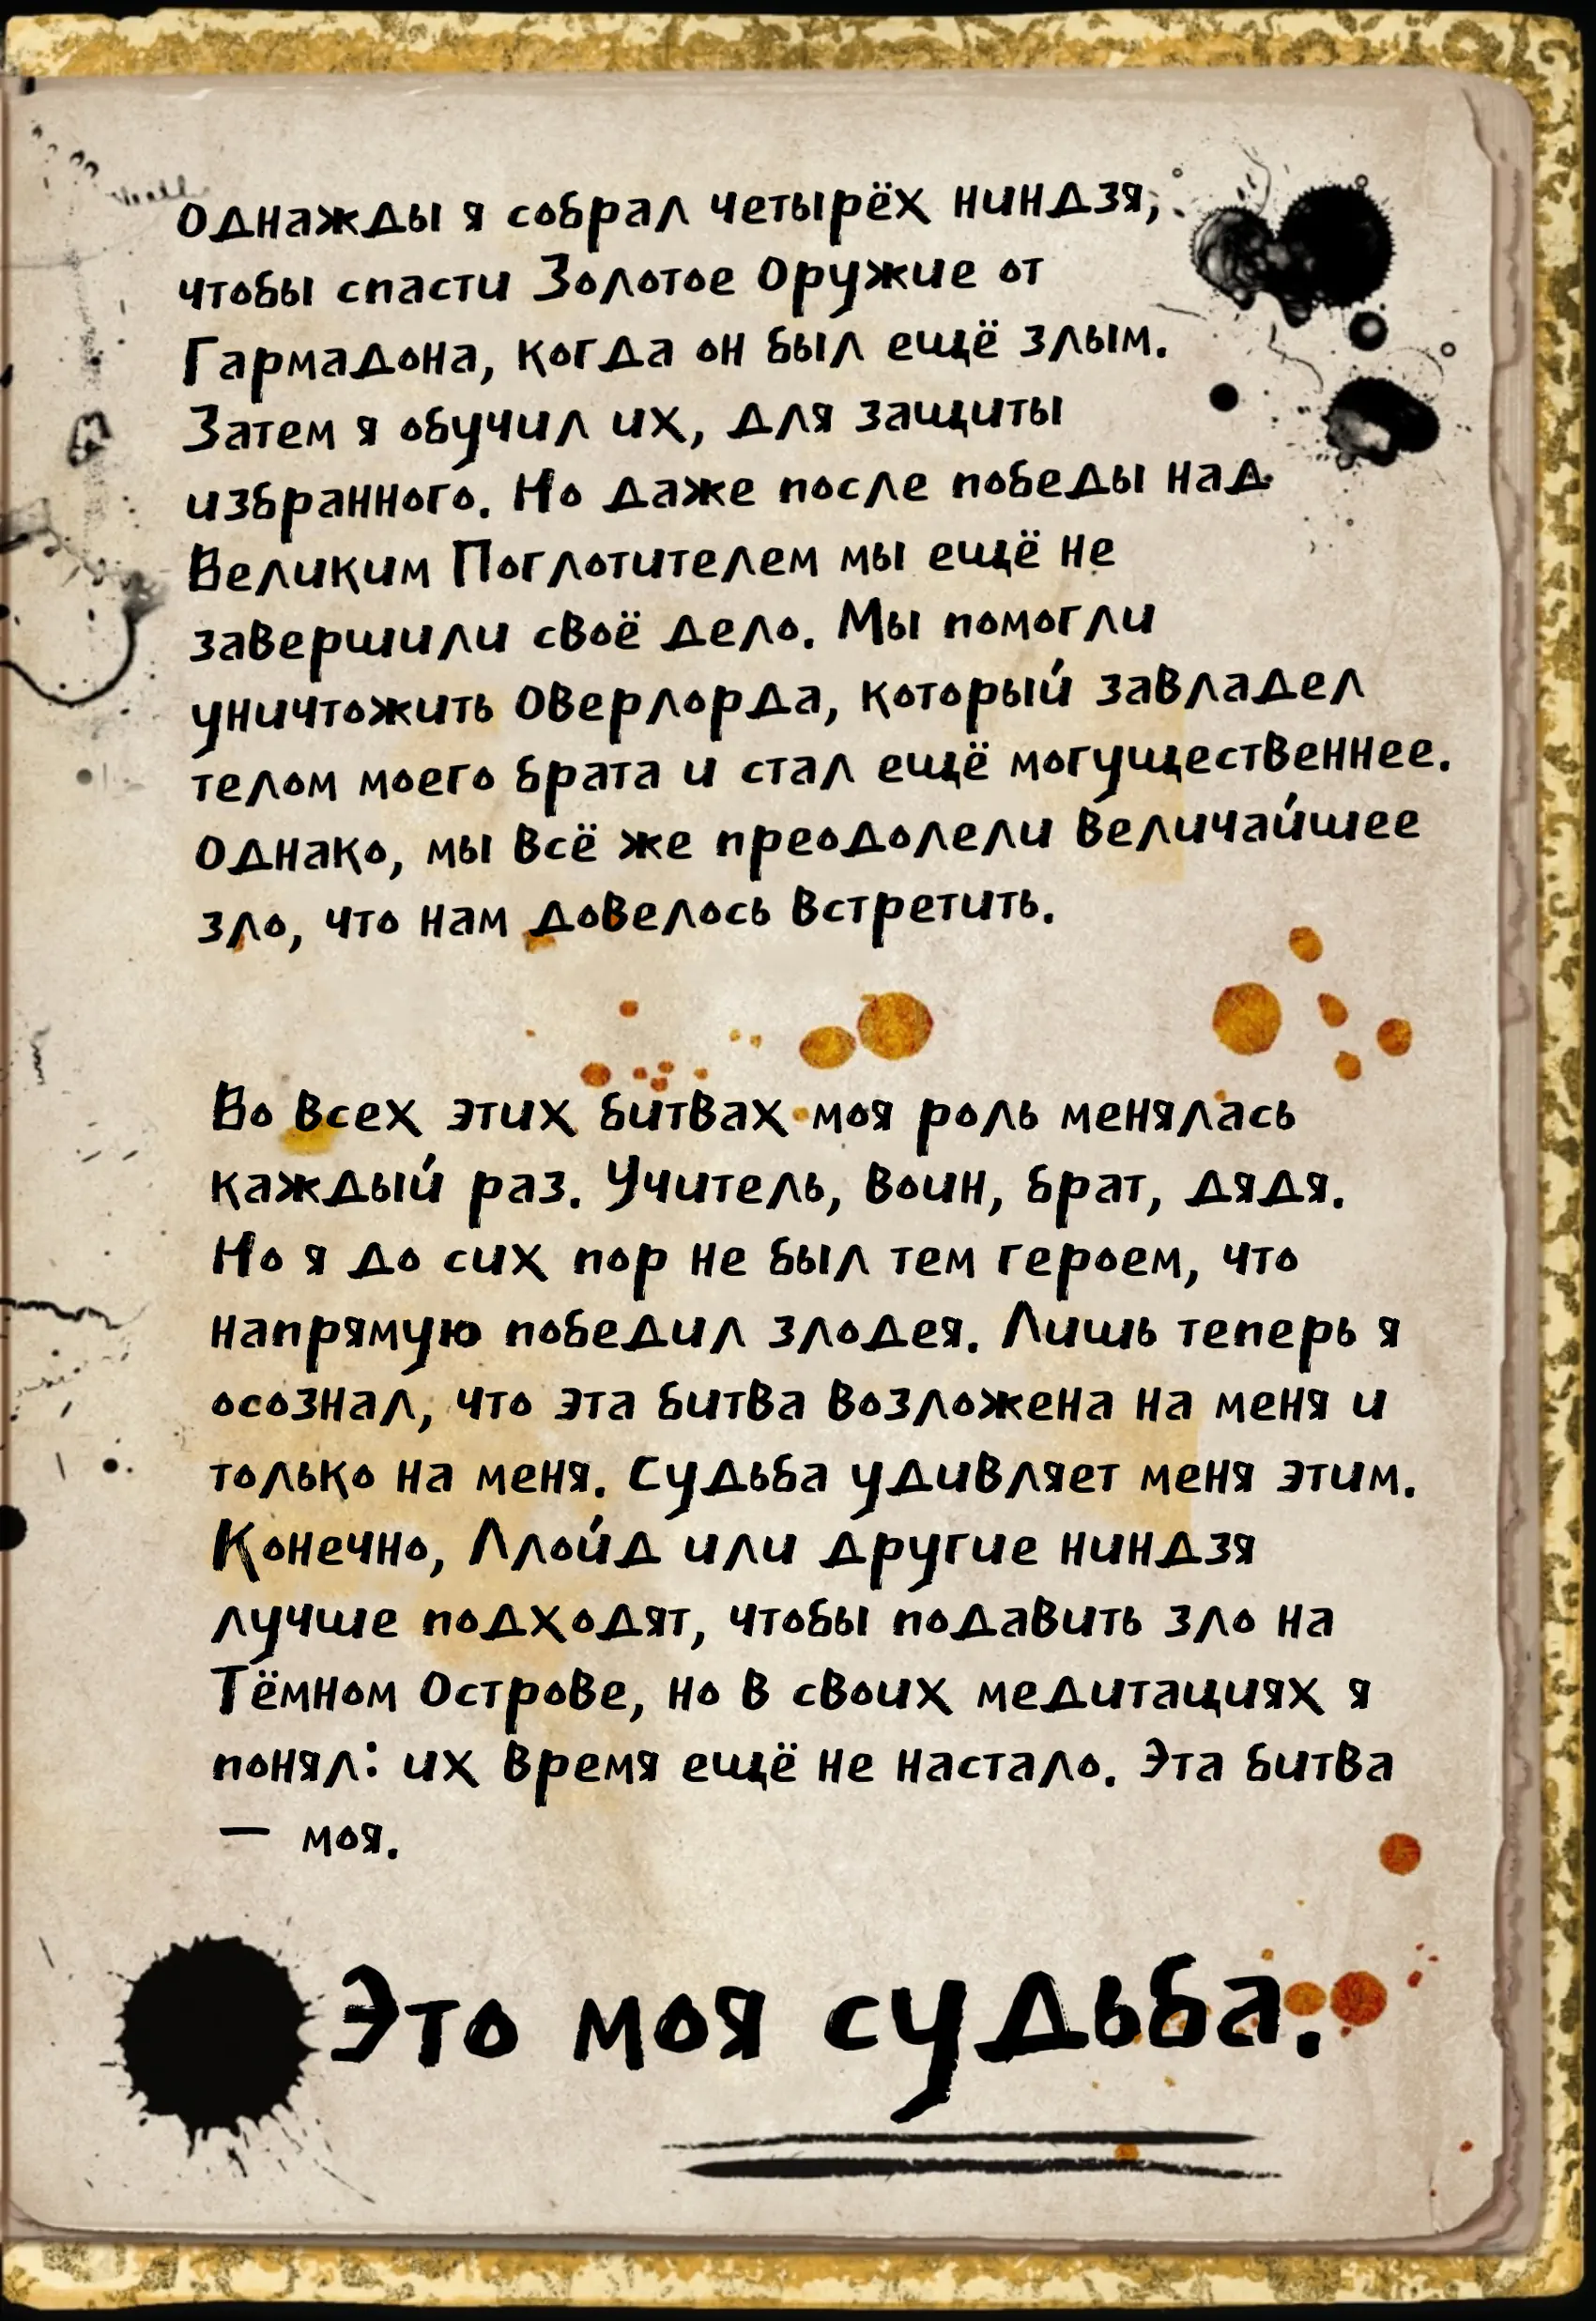 Однажды я собрал четырёх ниндзя,
чтобы спасти Золотое Оружие от
Гармадона, когда он был ещё злым.
Затем я обучил их, для защиты
избранного. Но даже после победы над
Великим Поглотителем мы ещё не
завершили своё дело. Мы помогли
уничтожить Оверлорда, который завладел
телом моего брата и стал ещё могущественнее.
Однако, мы всё же преодолели величайшее
зло, что нам довелось встретить.
Во всех этих битвах моя роль менялась
каждый раз. Учитель, воин, брат, дядя.
Но я до сих пор не был тем героем, что
напрямую победил злодея. Лишь теперь я
осознал, что эта битва возложена на меня и
только на меня. Судьба удивляет меня этим.
Конечно, Ллойд или другие ниндзя
лучше подходят, чтобы подавить зло на
Тёмном Острове, но в своих медитациях я
понял: их время ещё не настало. Эта битва
— моя.
Это моя судьба.